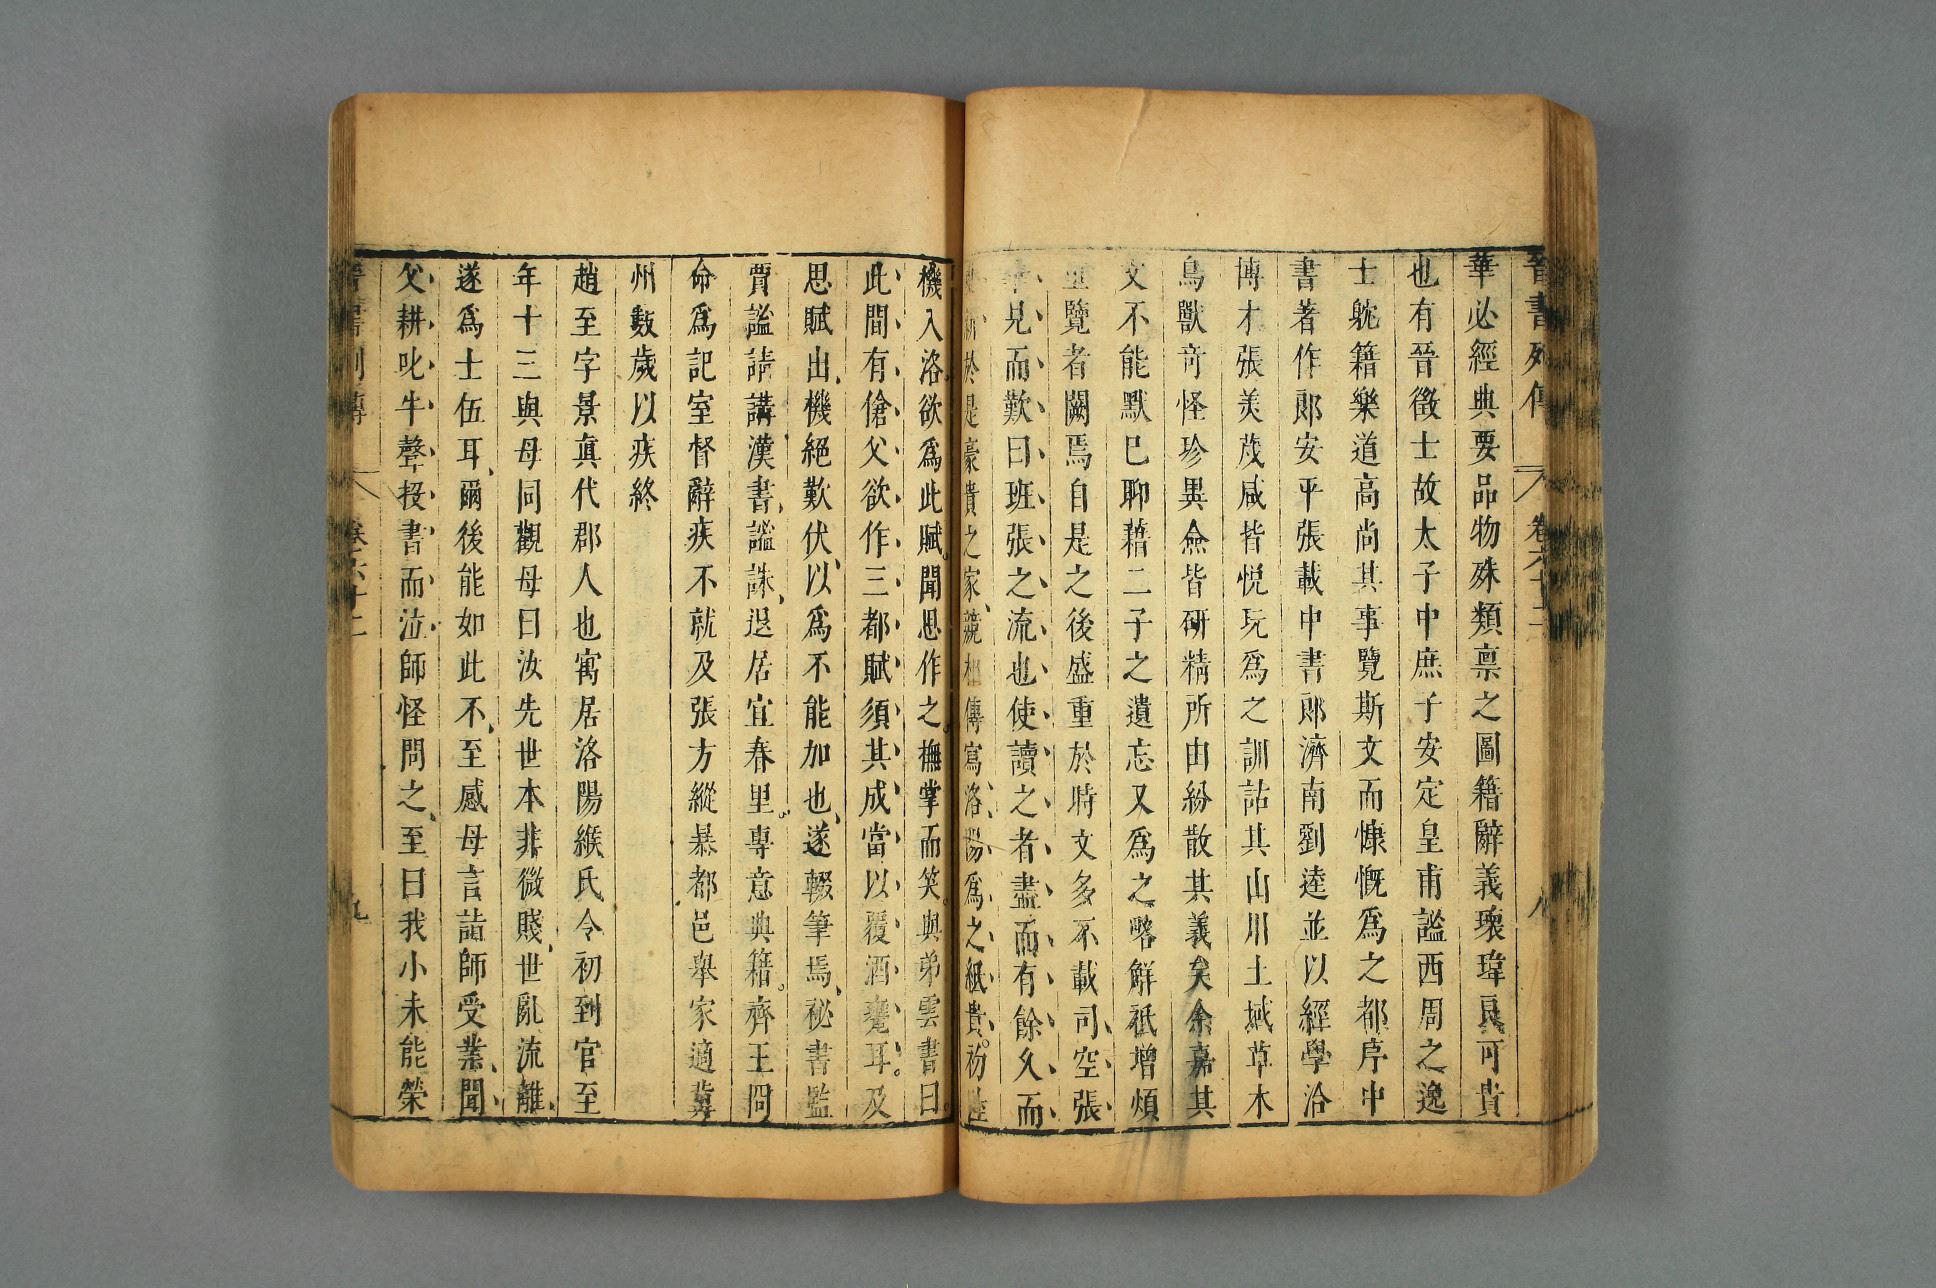 晉書列傳 卷六十二 八
華必經典要品物殊類禀之圖籍辭義瓌瑋良可貴
也有晉徵士故太子中庶子安定皇甫謐西周之逸
士躭籍樂道高尚其事覽斯文而慷慨爲之都序中
書著作郎安平張載中書郎濟南劉逵並以經學洽
博才張美茂咸皆悅玩爲之訓詁其山川土域草木
鳥獸竒怪珍異僉皆硏精所由紛散其義矣余嘉其
文不能默已聊藉二子之遺忘又爲之略解祇增煩
重覽者闕焉自是之後盛重於時文多不載司空張
華見而歎曰班張之流也使讀之者盡而有餘久而
更新於是豪貴之家競相傳寫洛陽爲之紙貴初陸
機入洛欲爲此賦聞思作之撫掌而笑與弟雲書曰
此間有傖父欲作三都賦須其成當以覆酒甕耳及
思賦出機絕歎伏以爲不能加也遂輟筆焉祕書監
賈謐請講漢書謐誅退居宜春里專意典籍齊王冏
命爲記室督辭疾不就及張方縱暴都邑舉家適冀
州數歲以疾終
趙至字景眞代郡人也寓居洛陽緱氏令初到官至
年十三與母同觀母曰汝先世本非微賤世亂流離
遂爲士伍耳爾後能如此不至感母言詣師受業聞
父耕叱牛聲投書而泣師怪問之至曰我小未能榮
晉書列傳 卷六十二 九